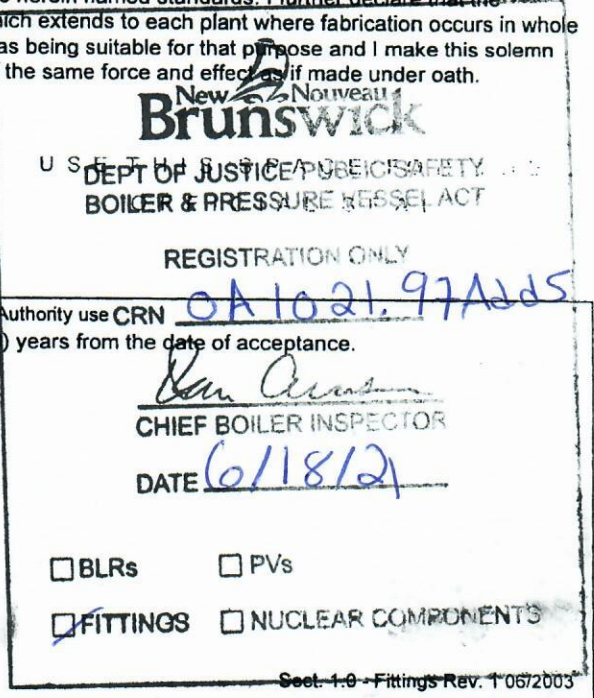 herein named standards. I further declare that the
which extends to each plant where fabrication occurs in whole
as being suitable for that purpose and I make this solemn
the same force and effect as if made under oath.
New Nouveau
Brunswick
DEPT OF JUSTICE/PUBLIC SAFETY
BOILER & PRESSURE VESSEL ACT
REGISTRATION ONLY
Authority use CRN 0A1021.97Add5
) years from the date of acceptance.
CHIEF BOILER INSPECTOR
DATE 6/18/21
BLRs PVs
FITTINGS NUCLEAR COMPONENTS
Sect. 1.0 - Fittings Rev. 1 06/2003